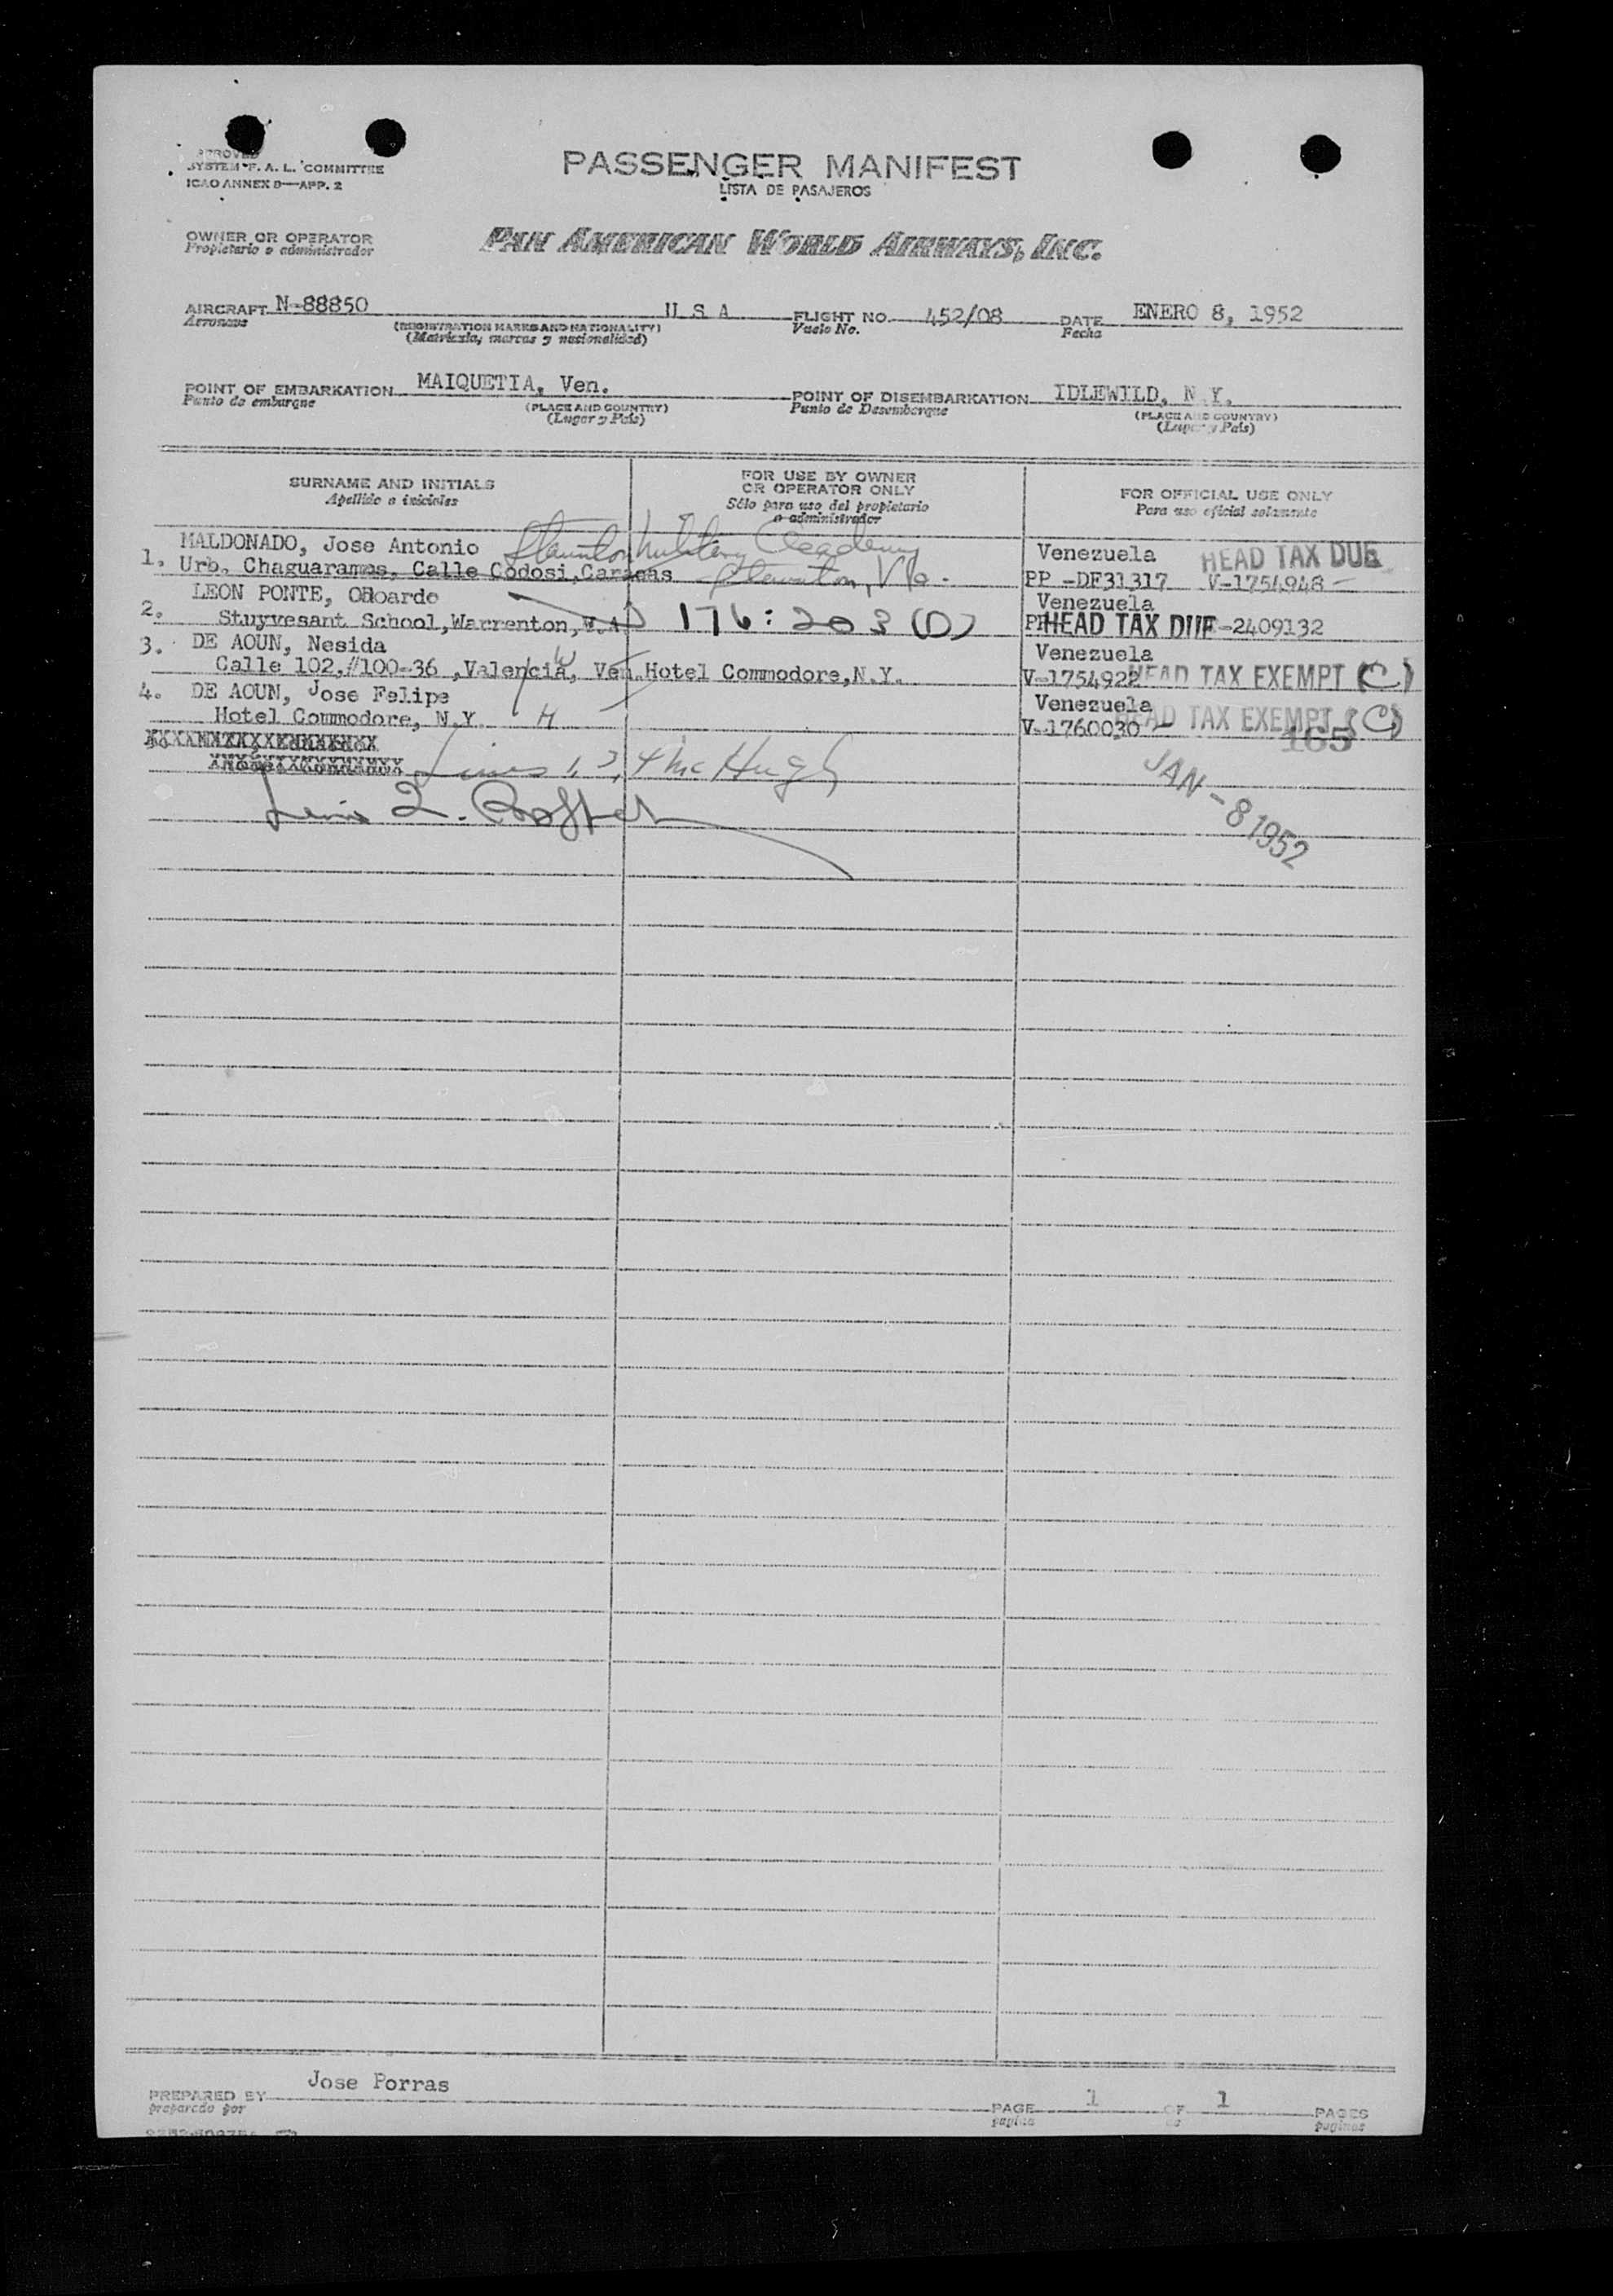 SYSTEM F. A. L. COMMITTEE
ICAO ANNEX 9—APP. 2
PASSENGER MANIFEST
LISTA DE PASAJEROS
OWNER OR OPERATOR
Propietario o administrador
PAN AMERICAN WORLD AIRWAYS, INC.
AIRCRAFT N-88850 U S A FLIGHT NO. 452/08 DATE ENERO 8, 1952
Aeronave (REGISTRATION MARKS AND NATIONALITY) Vuelo No. Fecha
(Matricula, marcas y nacionalidad)
POINT OF EMBARKATION MAIQUETIA, Ven. POINT OF DISEMBARKATION IDLEWILD, N.Y.
Punto de embarque (PLACE AND COUNTRY) Punto de Desembarque (PLACE AND COUNTRY)
(Lugar y País) (Lugar y País)
SURNAME AND INITIALS
Apellido e iniciales
FOR USE BY OWNER
OR OPERATOR ONLY
Sólo para uso del propietario
o administrador
FOR OFFICIAL USE ONLY
Para uso oficial solamente
1. MALDONADO, Jose Antonio Staunton Military Academy Venezuela HEAD TAX DUE
Urb. Chaguaramos, Calle Codosi, Caracas Staunton, Va. PP -DF31317 V-1754948
2. LEON PONTE, Odoardo Venezuela
Stuyvesant School, Warrenton, 176:203 (D) HEAD TAX DUE -2409132
3. DE AOUN, Nesida Venezuela
Calle 102, #100-36, Valencia, Ven. Hotel Commodore, N.Y. V-1754922 HEAD TAX EXEMPT (C)
4. DE AOUN, Jose Felipe W Venezuela
Hotel Commodore, N.Y. H V-1760030 HEAD TAX EXEMPT (C)
165
Lines 1, 3, 4 McHugh
JAN -8 1952
PREPARED BY Jose Porras
preparado por
PAGE 1 OF 1 PAGES
pagina de paginas